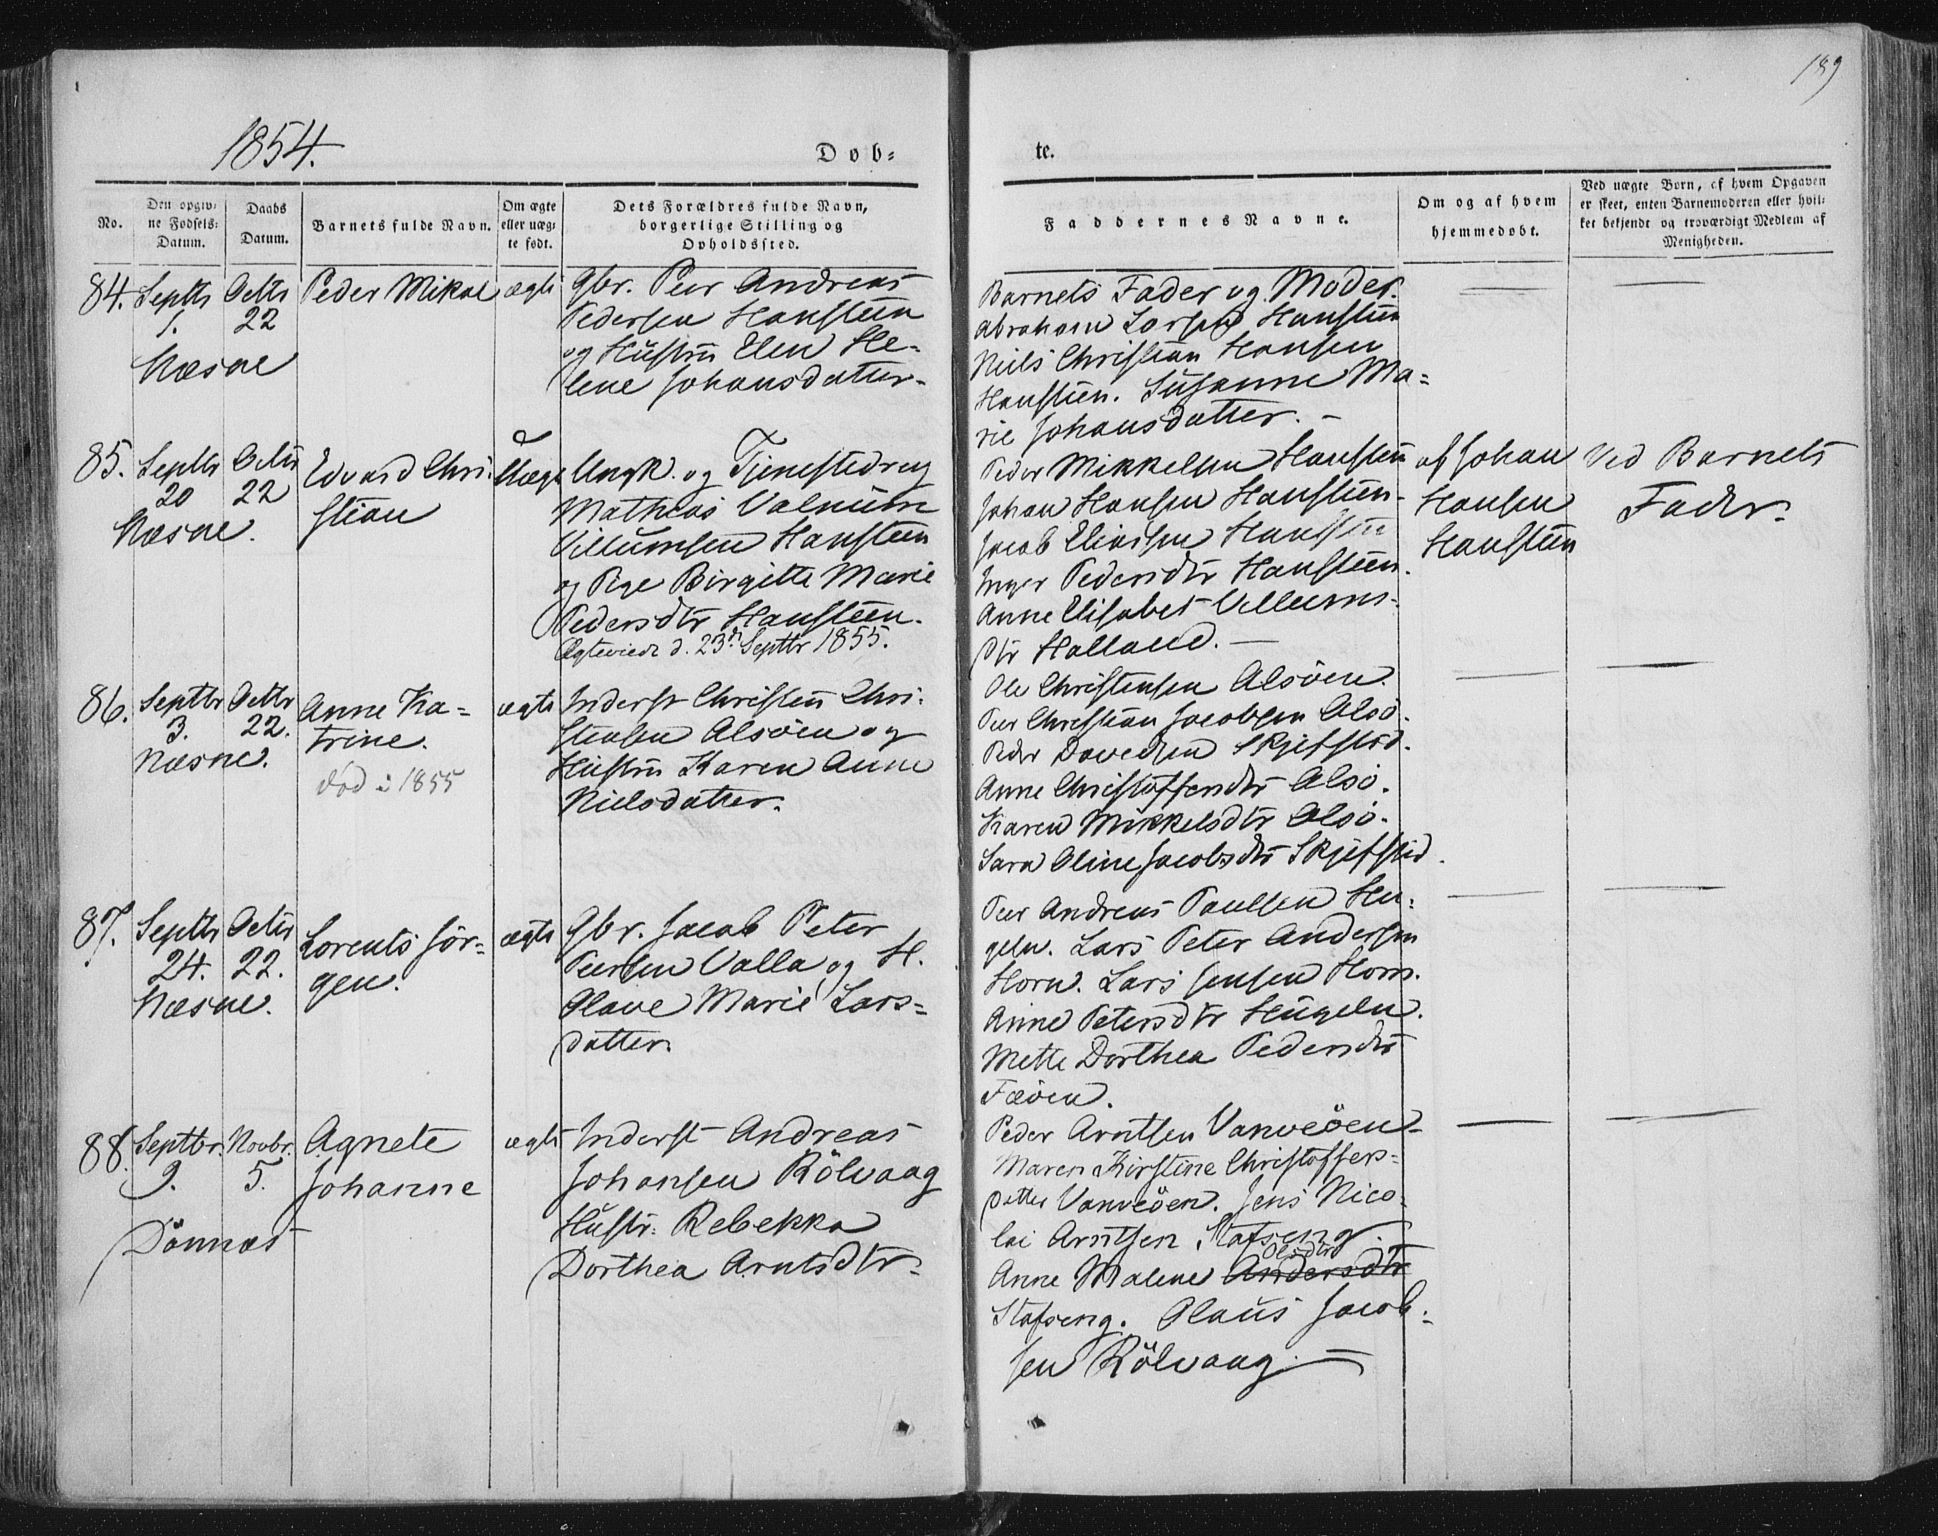 189
1854.
Dob-
te.
No.
Den opgiv-
ne Fødsels-
Datum.
Daabs
Datum.
Barnets fulde Navn.
Om ægte
eller uæg-
te født.
Dets Forældres fulde Navn,
borgerlige Stilling og
Opholdssted.
Faddernes Navne.
Om og af hvem
hjemmedøbt.
Ved uægte Børn, af hvem Opgaven
er skeet, enten Barnemoderen eller hvil-
ket bekjendt og troværdigt Medlem af
Menigheden.
84.
Septbr
1.
Næsne
Octbr
22
Peder Mikal
ægte
Gbr. Peer Andreas
Pedersen Hansteen
og Hustru Elen He-
lene Johansdatter.
Barnets Fader og Moder.
Abraham Larsen Hansteen
Niels Christian Hansen
Hansteen. Susanne Ma-
rie Johansdatter. -
85.
Septbr
20
Næsne.
Octbr
22
Edvard Chri-
stian
Uægte
Ungk. og Tjenestedreng
Mathias Valnum
Villumsen Hansteen
og Pige Birgitte Marie
Pedersdtr Hansteen.
Ægteviede d. 23de Septbr 1855.
Peder Mikkelsen Hansteen
Johan Hansen Hansteen.
Jacob Eliassen Hansteen
Inger Pedersdtr Hansteen.
Anne Elisabet Villums-
dtr Halland. -
af Johan
Hansen
Hansteen
Ved Barnets
Fader.
86.
Septbr
3.
Næsne.
Octbr
22.
Anne Ka-
trine.
død i 1855
ægte
Inderst Christen Chri-
stensen Alsøen og
Hustru Karen Anne
Nielsdatter.
Ole Christensen Alsøen.
Peer Christian Jacobsen Alsø.
Peder Davedsen Skjefstad.
Anne Christoffersdtr Alsø.
Karen Mikkelsdtr Alsø.
Sara Oline Jacobsdtr Skjefstad.
87.
Septbr
24.
Næsne.
Octbr
22.
Lorents Jör-
gen.
ægte
Gbr. Jacob Peter
Peersen Valla og H.
Olave Marie Lars-
datter.
Peer Andreas Paulsen Hu-
geln. Lars Peter Andersen
Horn. Lars Jensen Horn.
Anne Petersdtr Hugeln.
Mette Dorthea Pedersdtr
Fæöen.
88.
Septbr.
9.
Dönnæs
Novbr.
5.
Agnete
Johanne
ægte
Inderst Andreas
Johansen Rölvaag
Hustr: Rebekka
Dorthea Arntsdtr.
Peder Arntsen Vanveöen.
Maren Kirstine Christoffers-
datter Vanveöen. Jens Nico-
lai Arntsen Stafseng.
Olsdtr
Anne Malene Andersdtr
Stafseng. Olaus Jacob-
sen Rölvaag. -